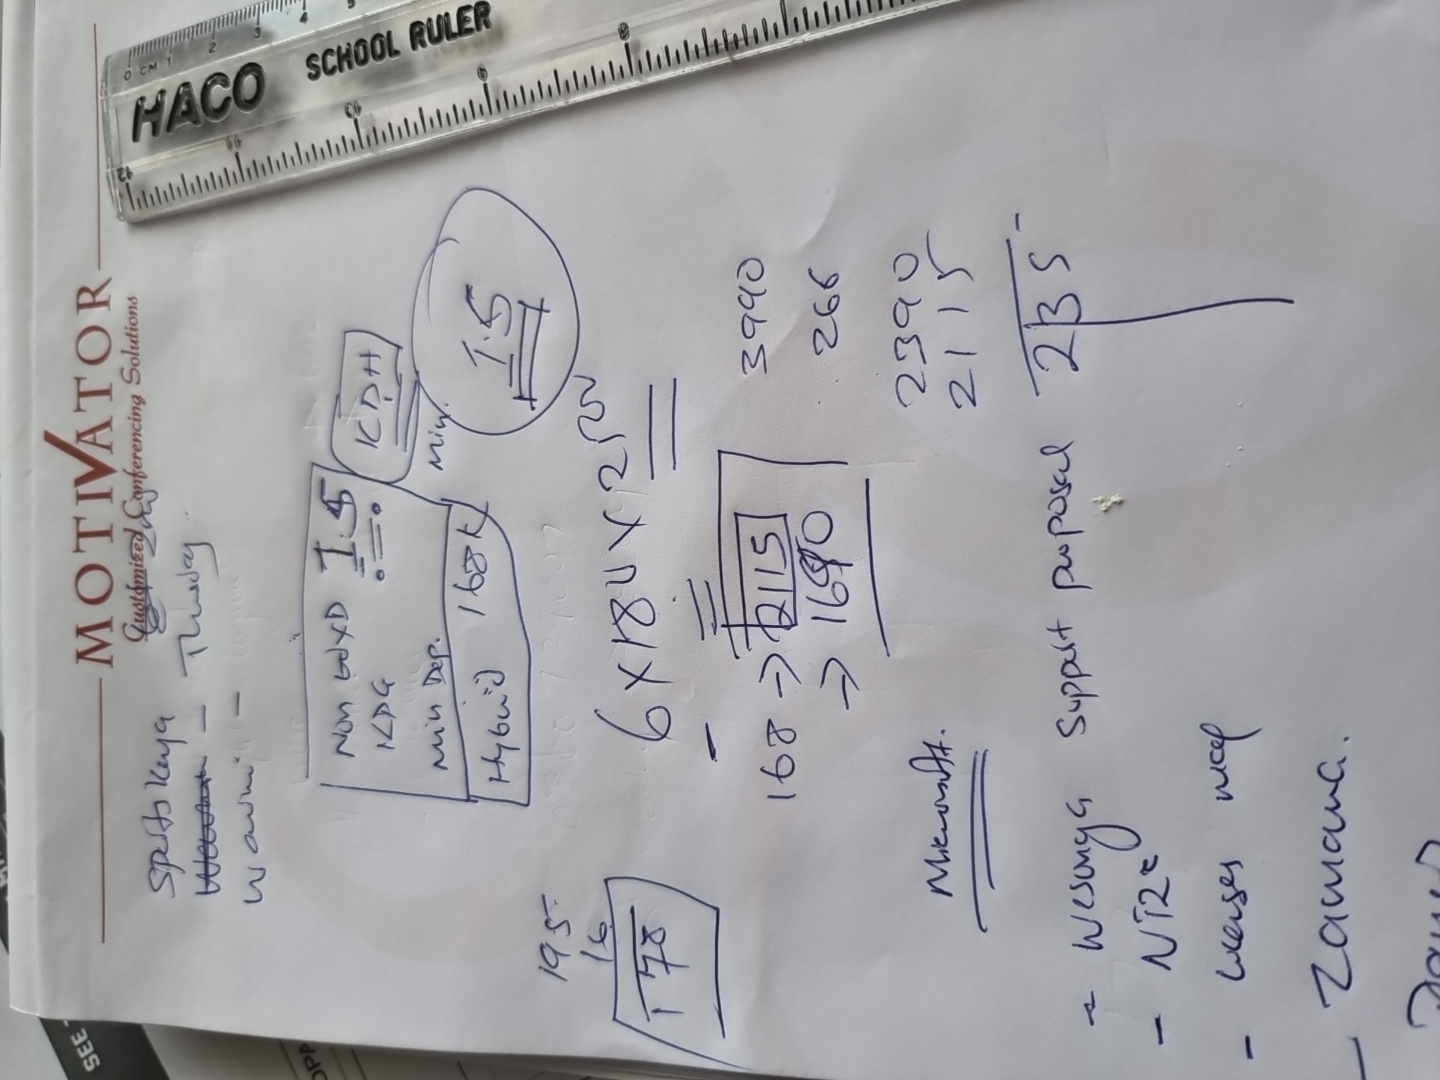 SEE
MOTIVATOR
Customized Conferencing Solutions
Sports Kenya
- Thursday
-
Non 4WXD 1.5
KDG
Min Dep.
Hybrid 168K
KDH
Min.
1.5
195
16
178
6 x 180 x 2500
168 → 2115
→ 1690
3990
266
2390
2115
235
Microsoft.
- Wesonga Support proposal
-
-
- Zamana.
HACO
SCHOOL RULER
0 CM 1
2
3
4